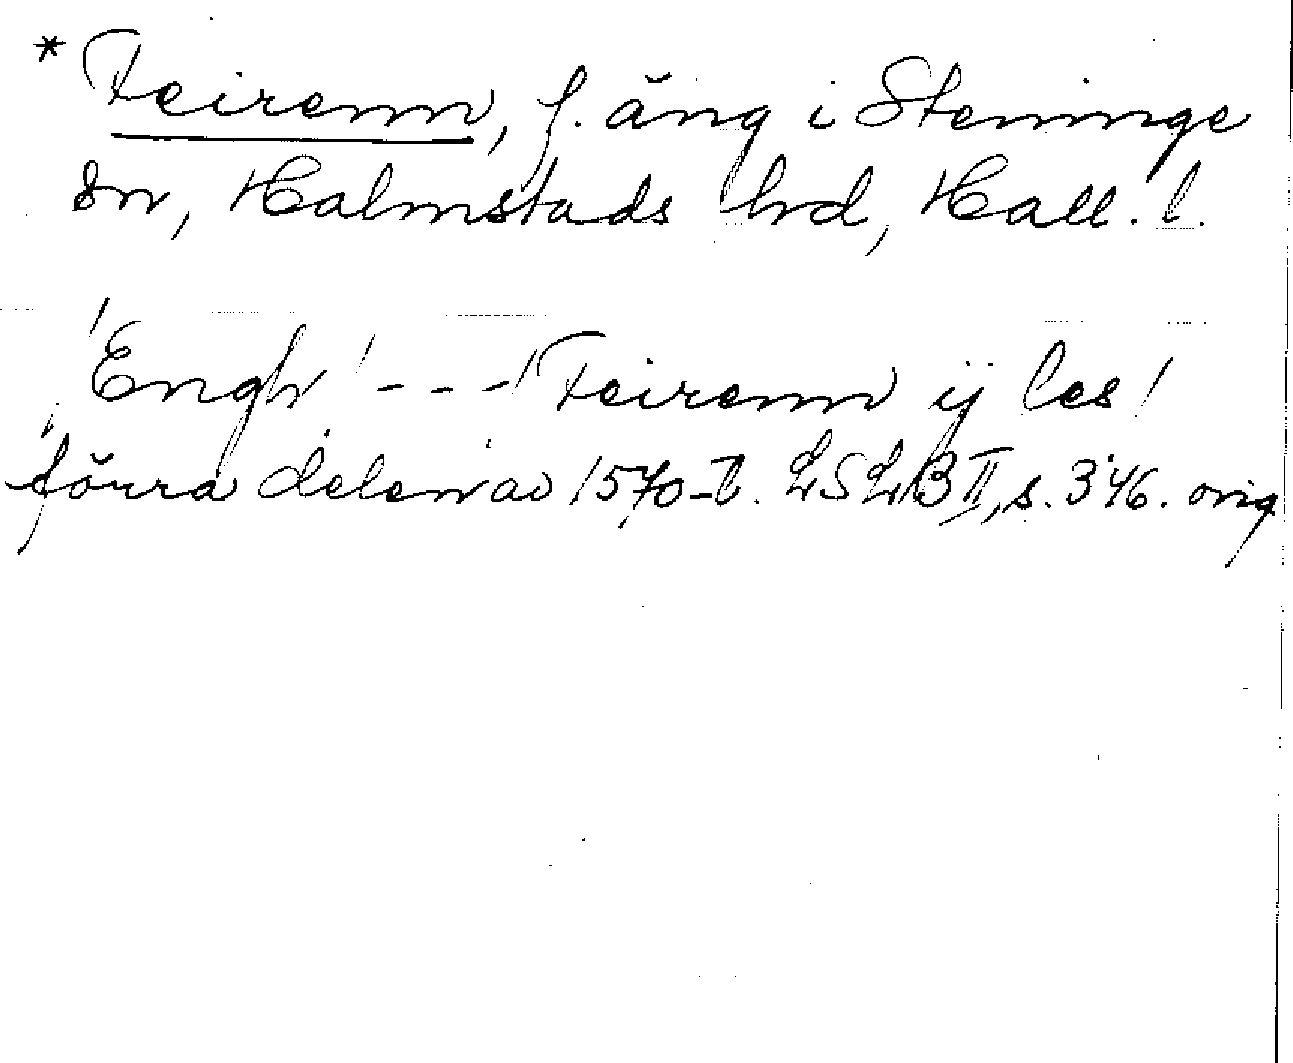 * Feirenn, f. äng i Steninge
sn, Halmstads hrd, Hall. l.
'Engh' --- 'Feirenn ij les'
förra delen av 1570-t. LSLB II, s. 346. orig